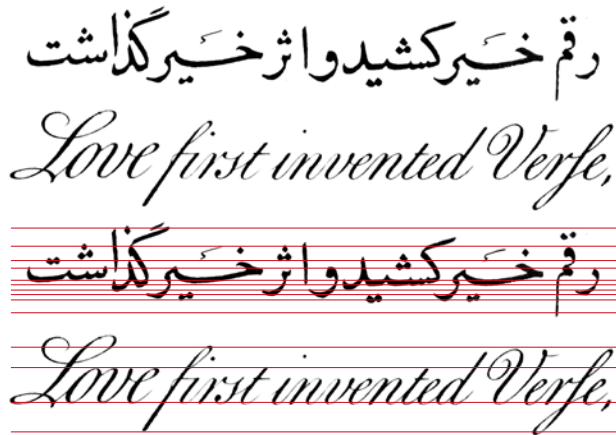 رقم خیر کشید و اثر خیر گذاشت
Love first invented Verſe,
رقم خیر کشید و اثر خیر گذاشت
Love first invented Verſe,